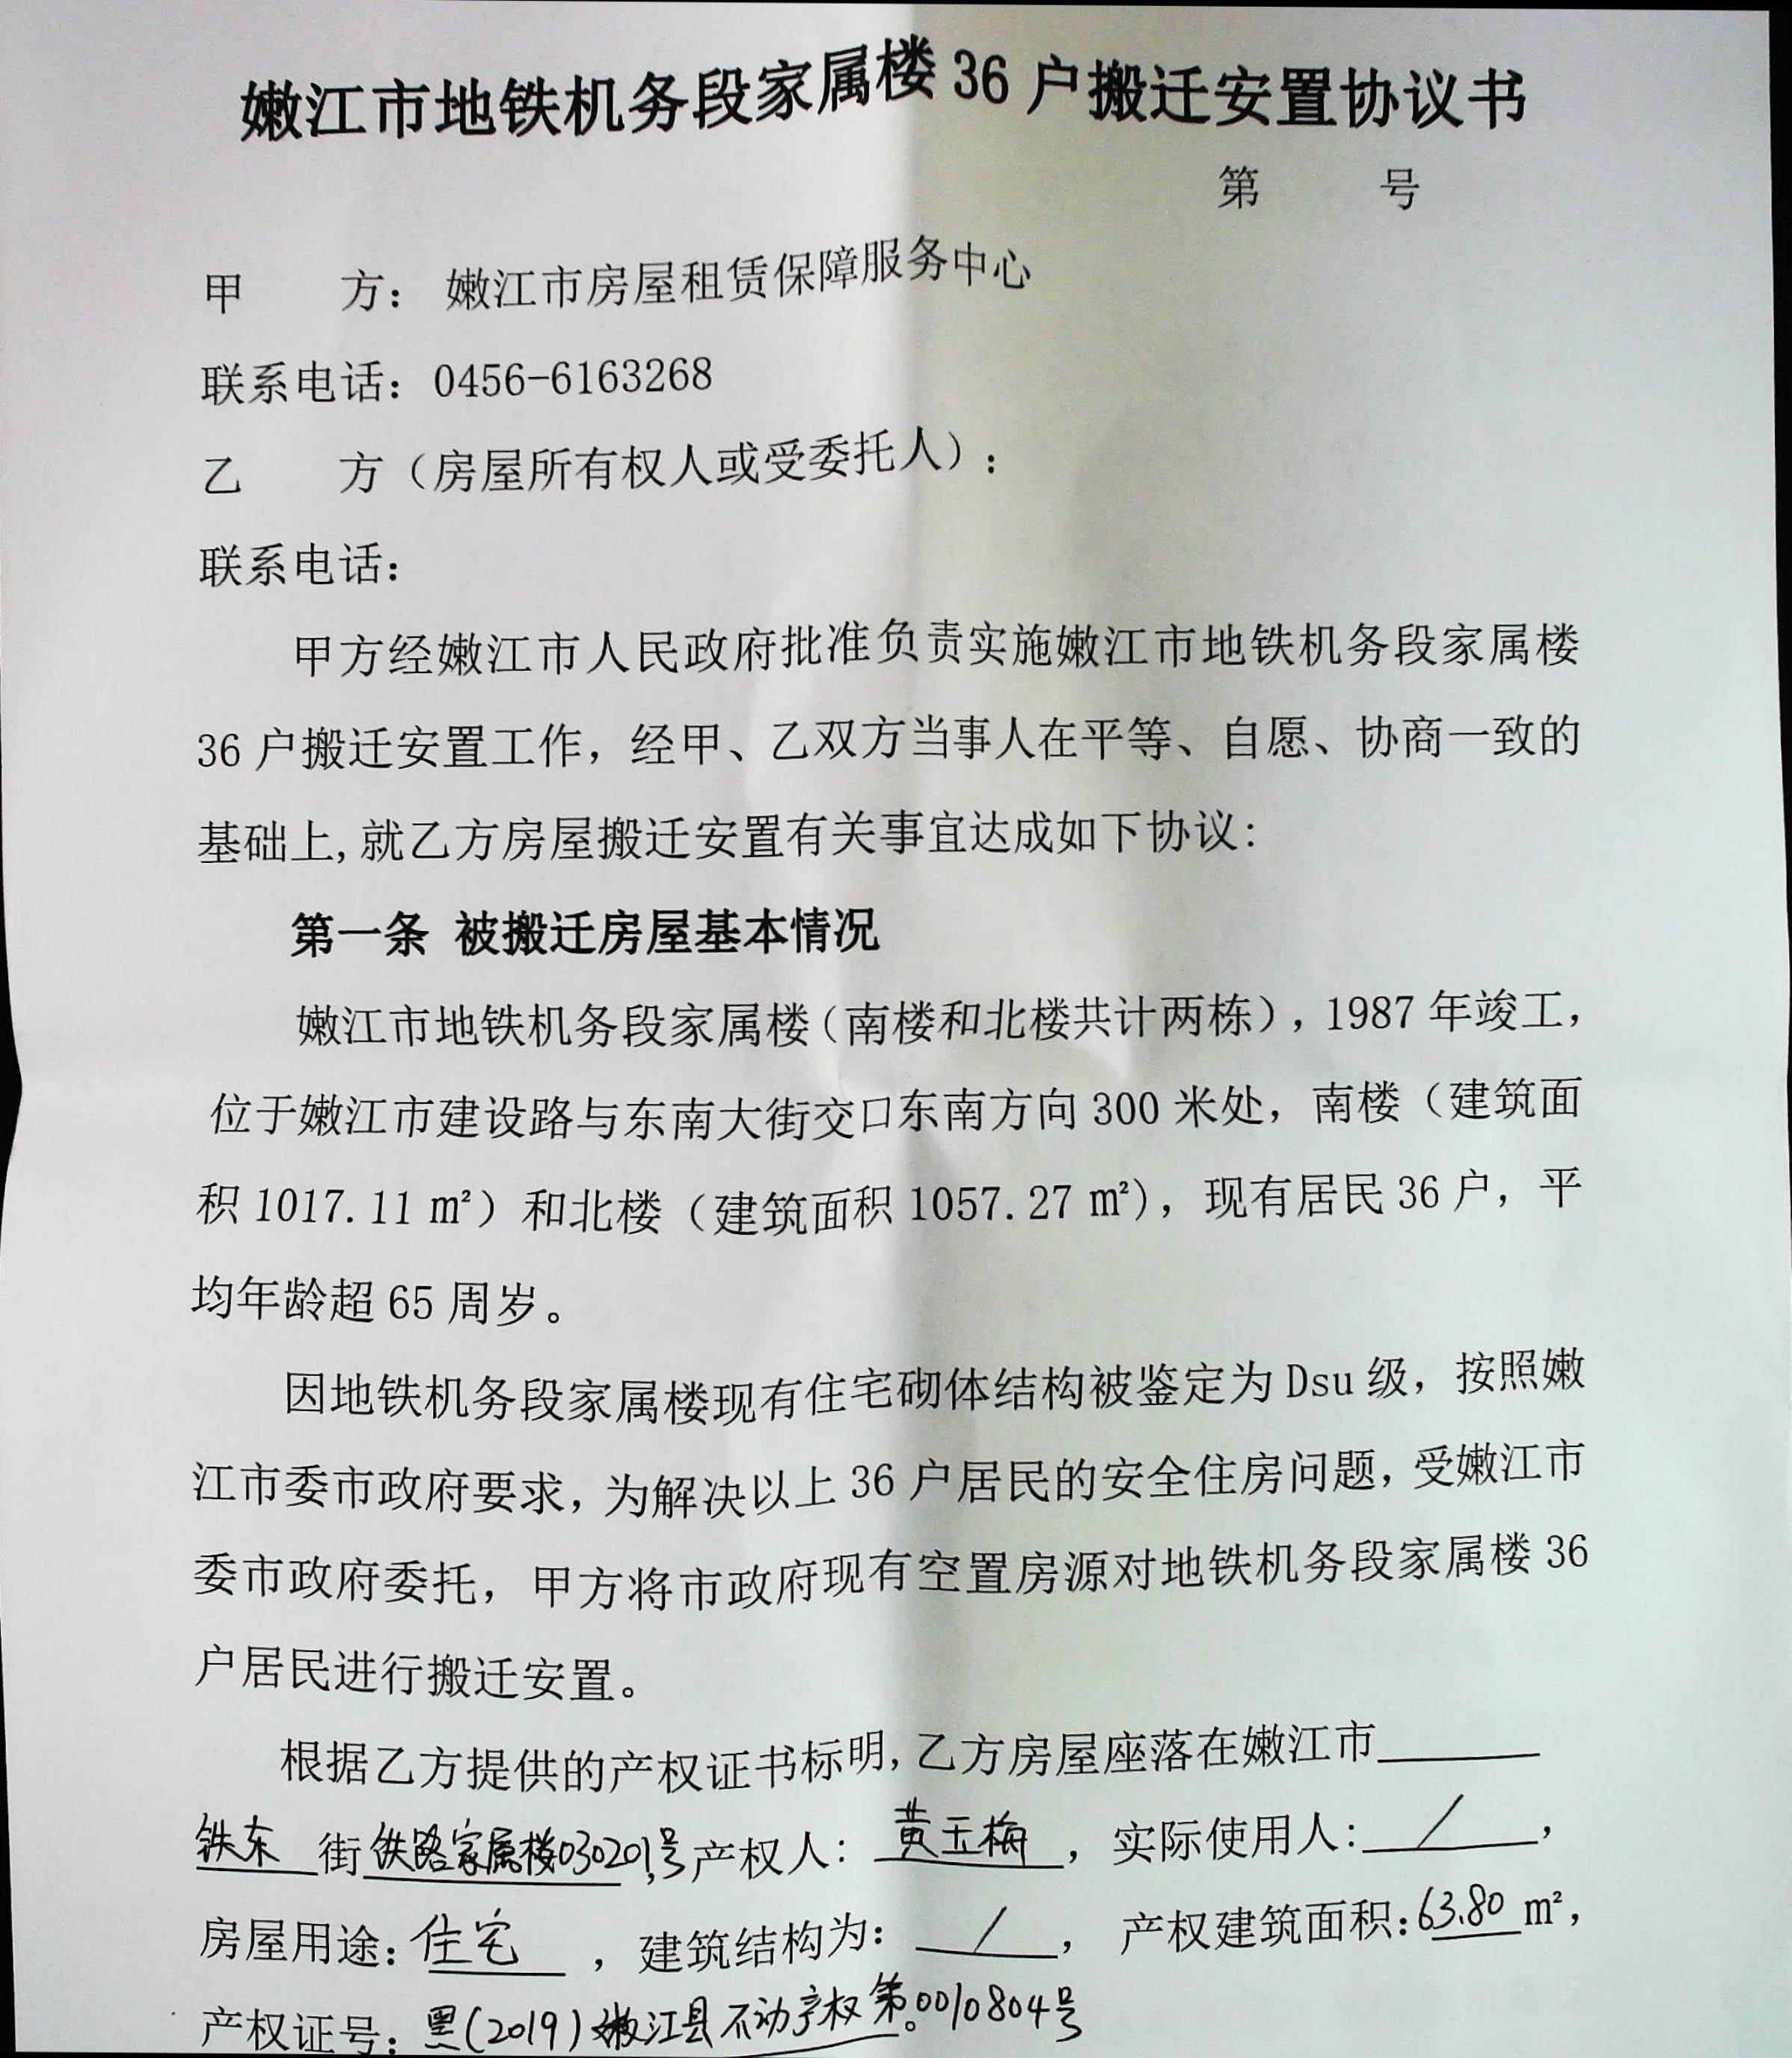 嫩江市地铁机务段家属楼 36 户搬迁安置协议书
第 号
甲 方： 嫩江市房屋租赁保障服务中心
联系电话：0456-6163268
乙 方（房屋所有权人或受委托人）：
联系电话：
甲方经嫩江市人民政府批准负责实施嫩江市地铁机务段家属楼
36 户搬迁安置工作，经甲、乙双方当事人在平等、自愿、协商一致的
基础上,就乙方房屋搬迁安置有关事宜达成如下协议:
第一条 被搬迁房屋基本情况
嫩江市地铁机务段家属楼（南楼和北楼共计两栋），1987 年竣工，
位于嫩江市建设路与东南大街交口东南方向 300 米处，南楼（建筑面
积 1017.11 ㎡）和北楼（建筑面积 1057.27 ㎡），现有居民 36 户，平
均年龄超 65 周岁。
因地铁机务段家属楼现有住宅砌体结构被鉴定为 Dsu 级，按照嫩
江市委市政府要求，为解决以上 36 户居民的安全住房问题，受嫩江市
委市政府委托，甲方将市政府现有空置房源对地铁机务段家属楼 36
户居民进行搬迁安置。
根据乙方提供的产权证书标明,乙方房屋座落在嫩江市
铁东 街 铁路家属楼030201号,产权人：黄玉梅，实际使用人: / ，
房屋用途：住宅 ，建筑结构为： / ，产权建筑面积:63.80 ㎡，
产权证号：黑(2019)嫩江县不动产权第0010804号。